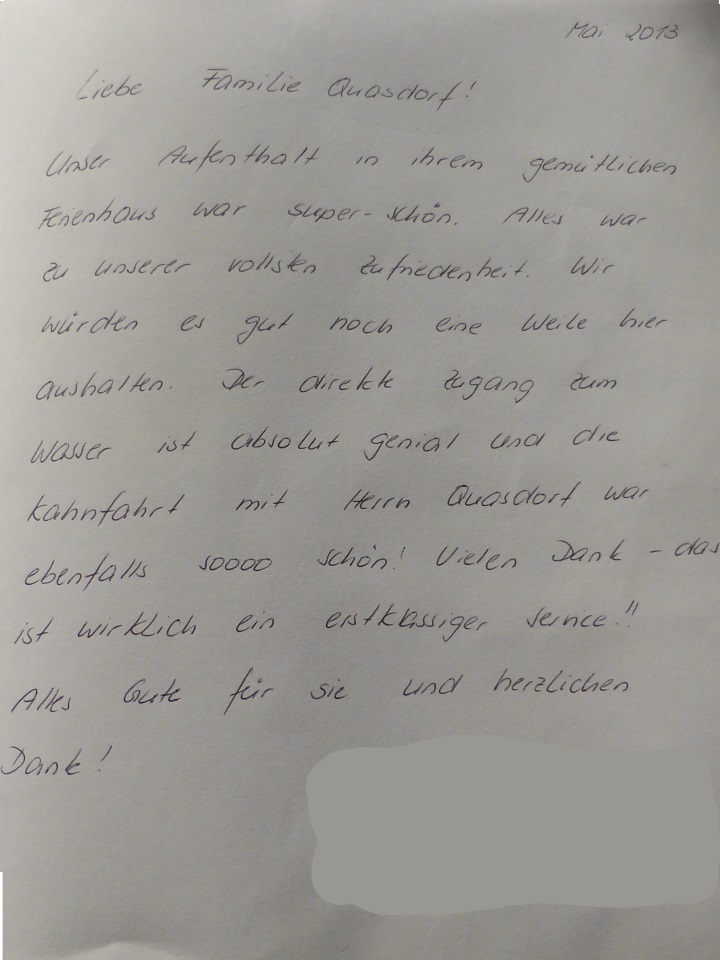 Mai 2013
Liebe Familie Quasdorf!
Unser Aufenthalt in ihrem gemütlichen
Ferienhaus war super-schön. Alles war
zu unserer vollsten Zufriedenheit. Wir
würden es gut noch eine Weile hier
aushalten. Der direkte Zugang zum
Wasser ist absolut genial und die
Kahnfahrt mit Herrn Quasdorf war
ebenfalls soooo schön! Vielen Dank - das
ist wirklich ein erstklassiger Service!!
Alles Gute für sie und herzlichen
Dank!